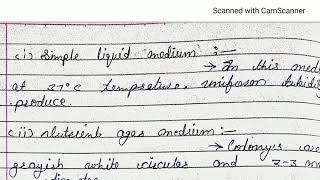 Scanned with CamScanner
(i) Simple liquid medium :—
→ In this med
at 37°C tempreture, uniform tubidi
produce.
(ii) Nutrient ager medium :—
→ Colonys are
grayish white circules and 2-3 m